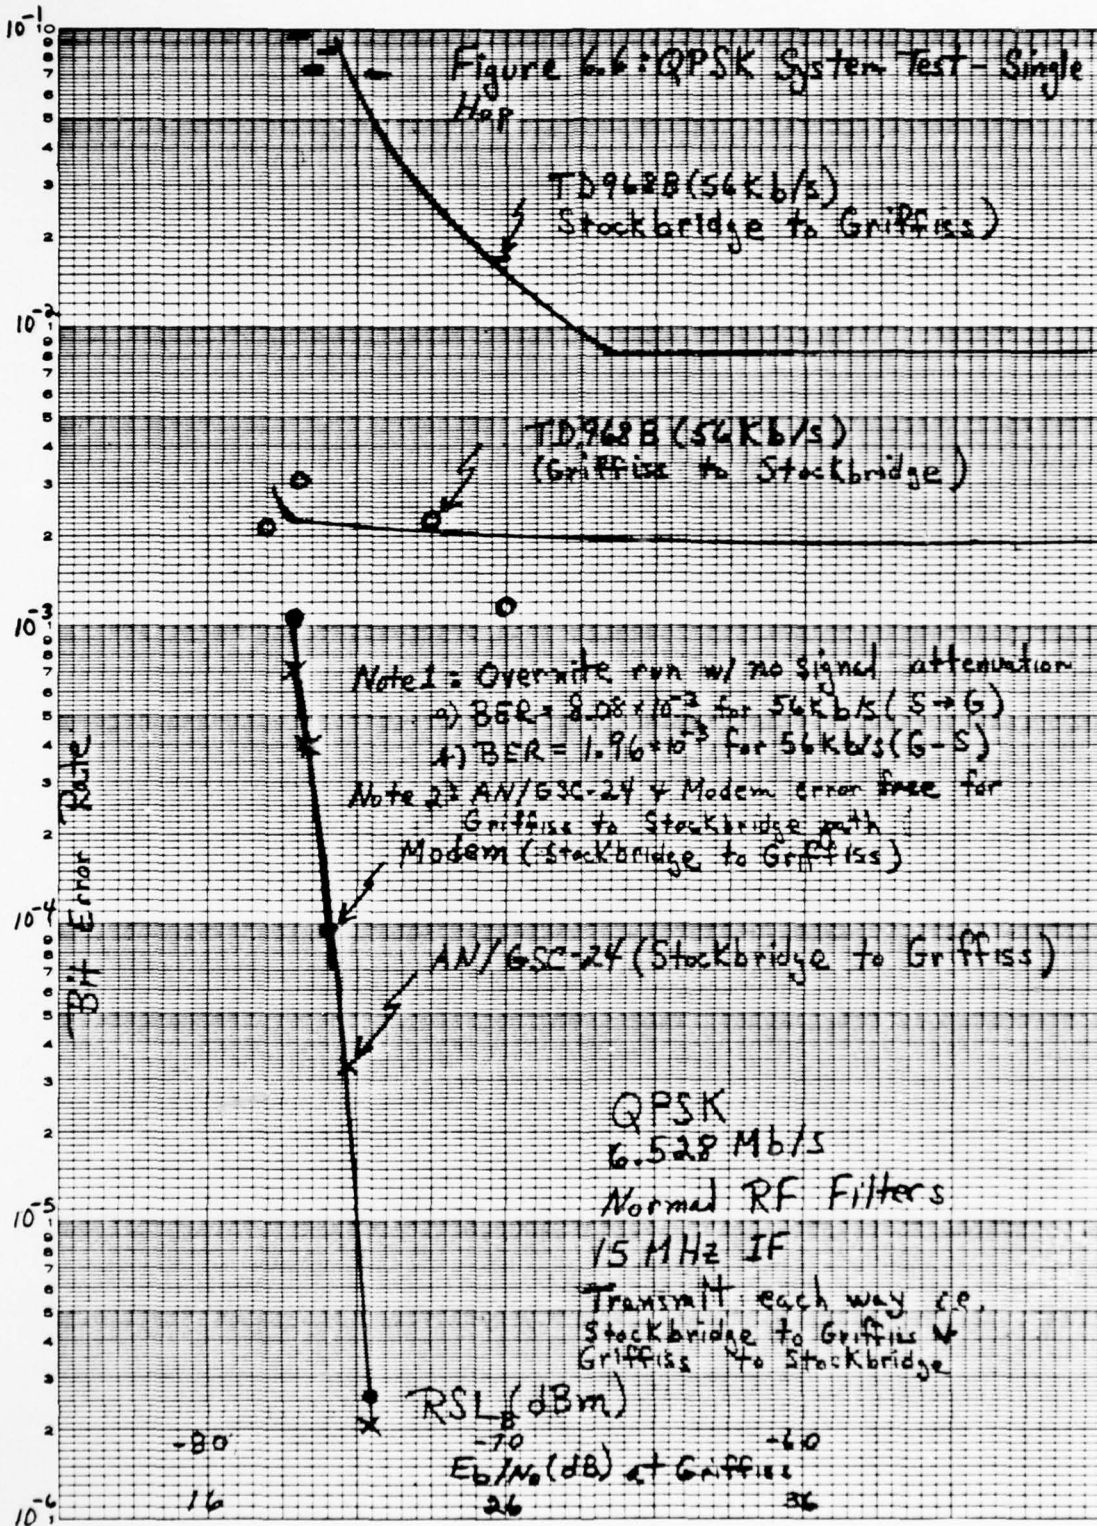 Figure 6.6: QPSK System Test - Single
Hop
TD968B (56Kb/s)
Stockbridge to Griffiss)
TD968B (56Kb/s)
(Griffiss to Stockbridge)
Note 1: Overnite run w/ no signal attenuation
a) BER = 8.08×10⁻³ for 56Kb/s (S→G)
b) BER = 1.96×10⁻³ for 56Kb/s (G-S)
Note 2: AN/GSC-24 & Modem error free for
Griffiss to Stockbridge path
Modem (Stockbridge to Griffiss)
AN/GSC-24 (Stockbridge to Griffiss)
QPSK
6.528 Mb/s
Normal RF Filters
15 MHz IF
Transmit each way i.e.
Stockbridge to Griffiss &
Griffiss to Stockbridge
RSL (dBm)
-80 -70 -60
Eb/No (dB) at Griffiss
16 26 36
Bit Error Rate
10⁻¹
9
8
7
6
5
4
3
2
10⁻²
1
9
8
7
6
5
4
3
2
10⁻³
1
9
8
7
6
5
4
3
2
10⁻⁴
1
9
8
7
6
5
4
3
2
10⁻⁵
1
9
8
7
6
5
4
3
2
10⁻⁶
1